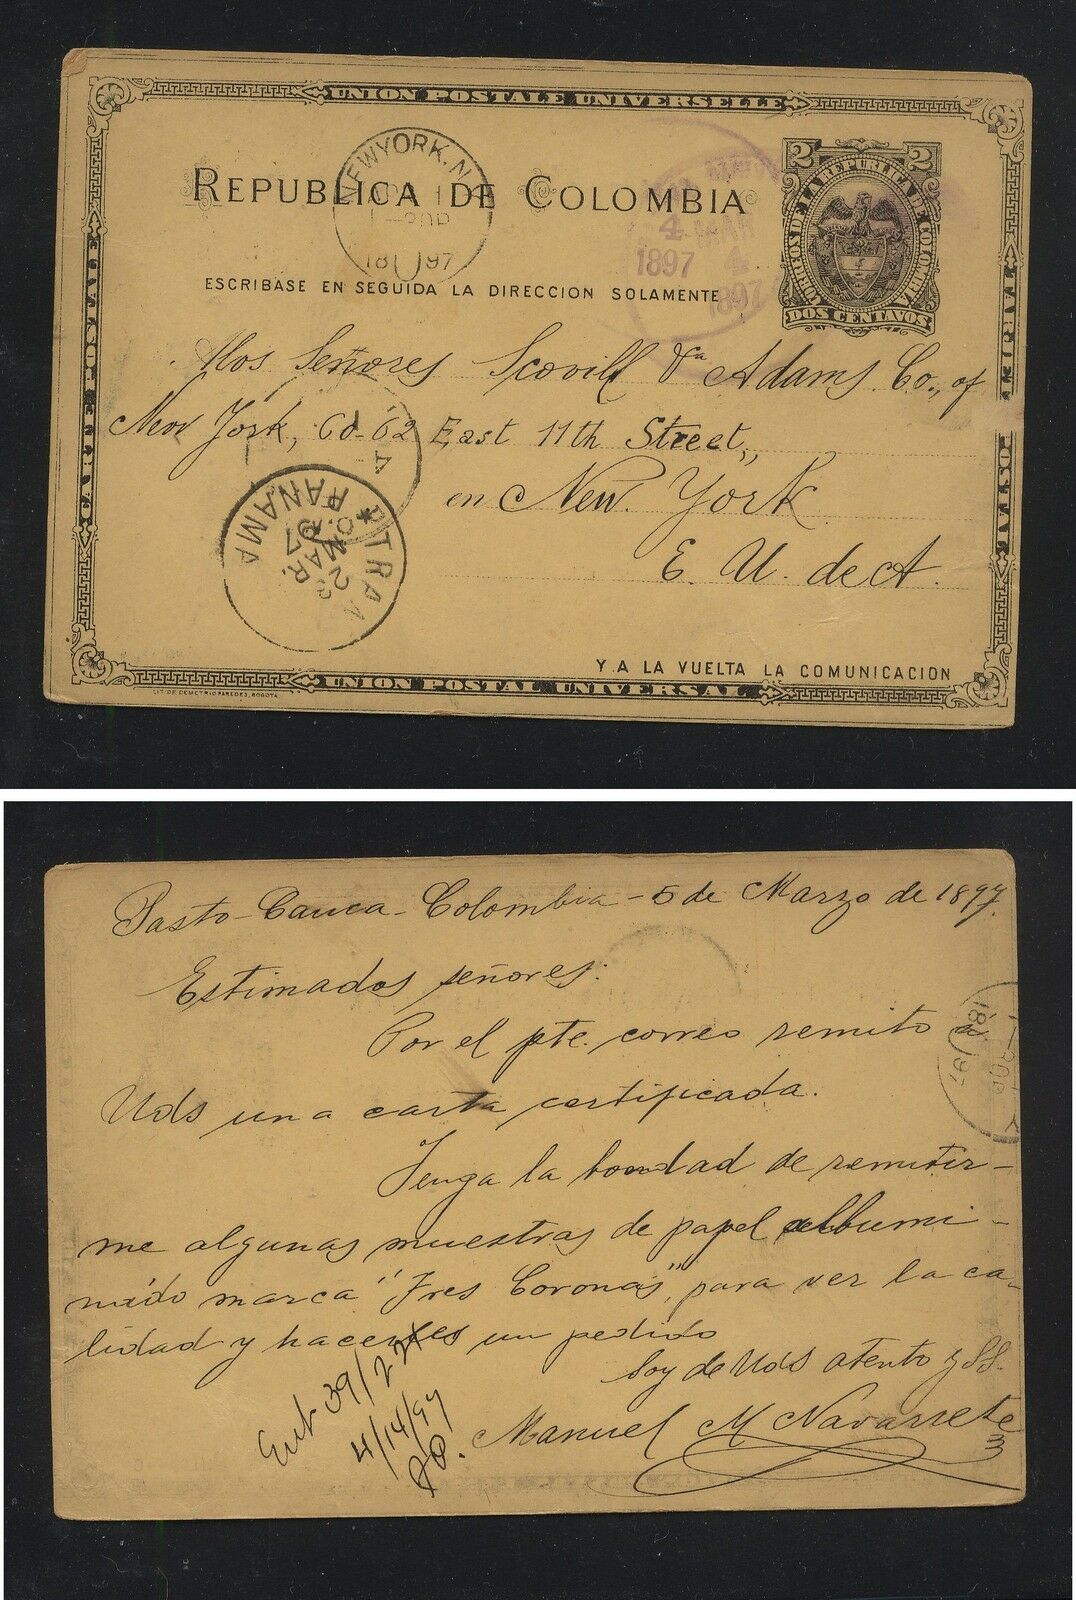 UNION POSTALE UNIVERSELLE
REPUBLICA DE COLOMBIA
NEW YORK, N.
1897
4 MAR
1897 4
1897
2 2
CORREOS DE LA REPUBLICA DE COLOMBIA
DOS CENTAVOS
ESCRIBASE EN SEGUIDA LA DIRECCION SOLAMENTE
TARJETA POSTAL
CARTE POSTALE
Señores Scovill & Adams Co., of
New York, 60-62 East 11th Street,,
en New York
E. U. de A.
TRAN
PANAMA
MAR
PANAMA
Y A LA VUELTA LA COMUNICACION
UNION POSTAL UNIVERSAL
LIT. DE DEMETRIO PAREDES, BOGOTA
Pasto-Cauca-Colombia-5 de Marzo de 1897.
Estimados señores:
Por el pte. correo remito á
Uds una carta certificada.
Tenga la bondad de remitir-
me algunas muestras de papel albumi-
nado marca "Tres Coronas", para ver la ca-
lidad y hacerles un pedido
Soy de Uds atento y SS.
Manuel M Navarrete
4/14/97
1897